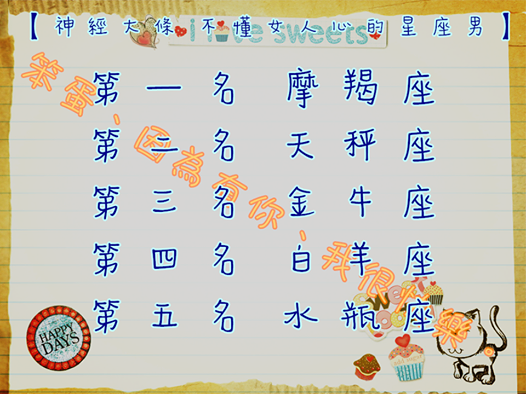 【神經大條不懂女人心的星座男】
i love sweets
第一名 摩羯座
第二名 天秤座
第三名 金牛座
第四名 白羊座
第五名 水瓶座
笨蛋、因為有你、我很快樂
HAPPY DAYS